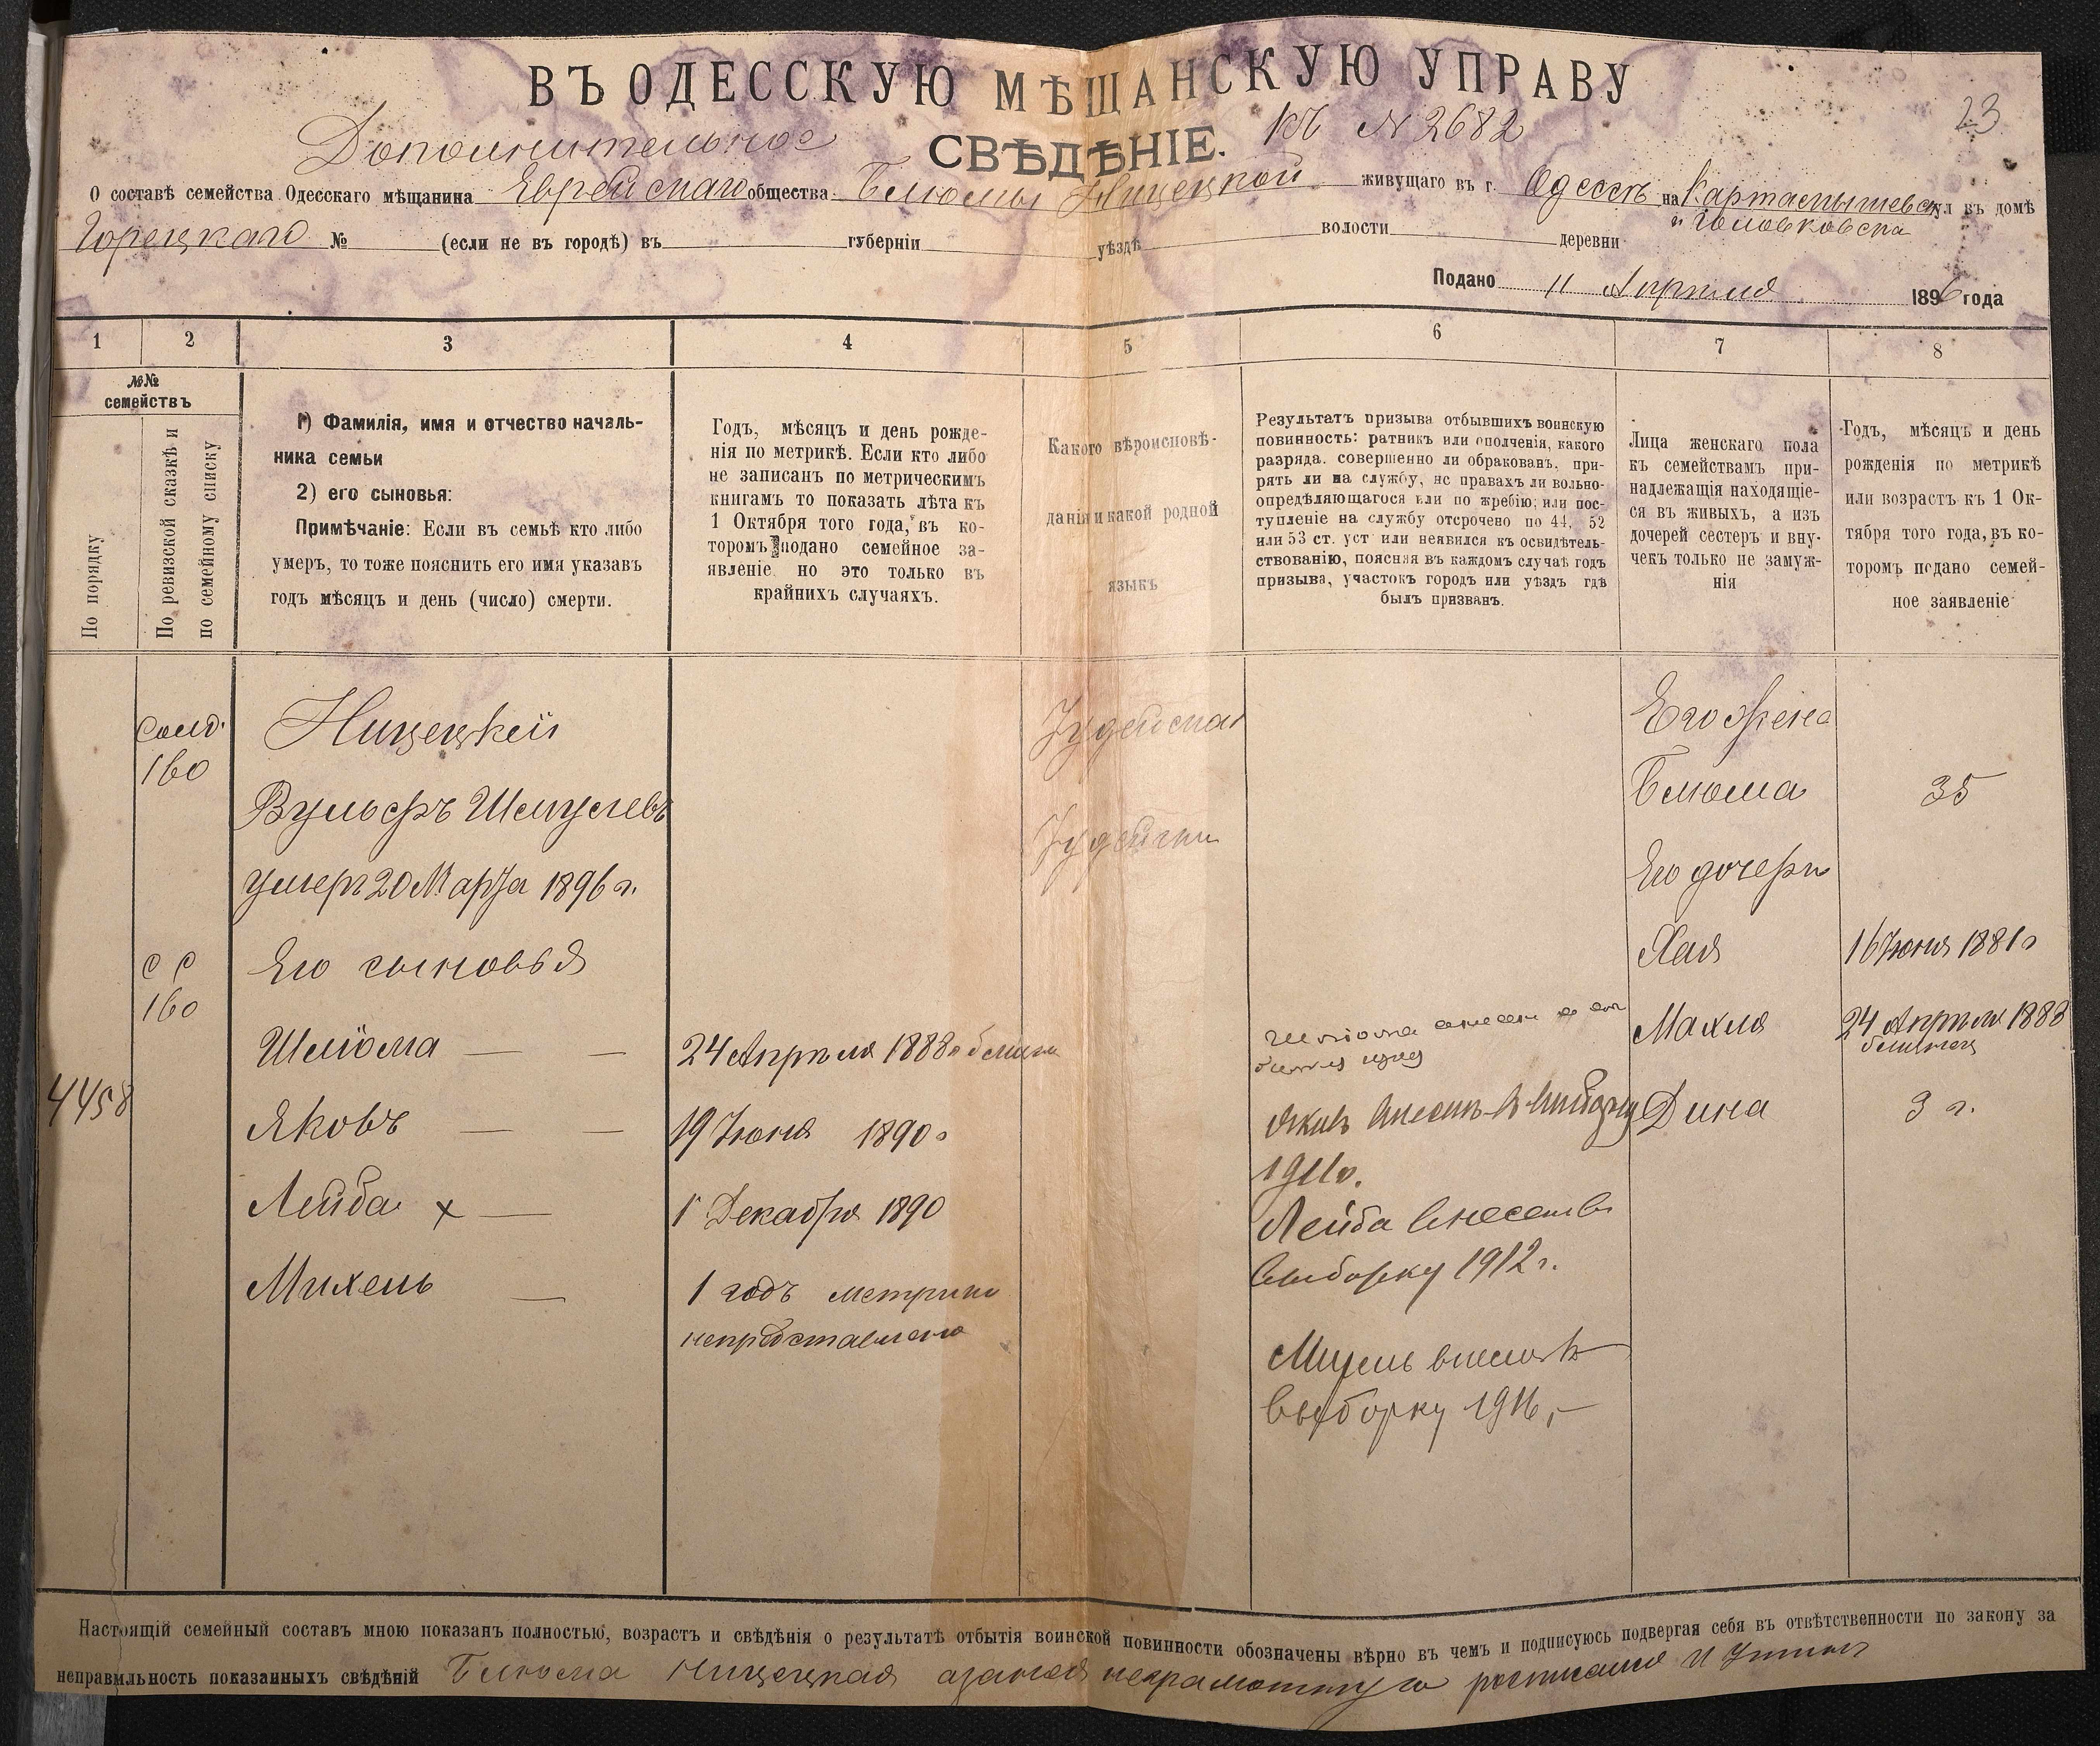 ВЪ ОДЕССКУЮ МѢЩАНСКУЮ УПРАВУ
23
Дополнительное СВѢДѢНІЕ. къ № 2682
О составѣ семейства Одесскаго мѣщанина Еврейскаго общества Блюмы Ницецкой живущаго въ г. Одессѣ на Картамышевск ул въ домѣ
и Головковска
Горецкаго № (если не въ городѣ) въ губерніи уѣздѣ волости деревни
Подано 11 Апрѣля 1896 года
1 2 3 4 5 6 7 8
№№ семействъ
По порядку
По ревизской сказкѣ и
по семейному списку
1) Фамилія, имя и отчество началь-
ника семьи
2) его сыновья:
Примѣчаніе: Если въ семьѣ кто либо
умеръ, то тоже пояснить его имя указавъ
годъ мѣсяцъ и день (число) смерти.
Годъ, мѣсяцъ и день рожде-
нія по метрикѣ. Если кто либо
не записанъ по метрическимъ
книгамъ то показать лѣта къ
1 Октября того года, въ ко-
торомъ подано семейное за-
явленіе но это только въ
крайнихъ случаяхъ.
Какого вѣроисповѣ-
данія и какой родной
языкъ
Результатъ призыва отбывшихъ воинскую
повинность: ратникъ или ополченія, какого
разряда. совершенно ли обракованъ, при-
рять ли на службу, нс правахъ ли вольно-
опредѣляющагося или по жребію, или пос-
тупленіе на службу отсрочено по 44, 52
или 53 ст. уст или неявился къ освидѣтель-
ствованію, поясняя въ каждомъ случаѣ годъ
призыва, участокъ городъ или уѣздъ гдѣ
былъ призванъ.
Лица женскаго пола
къ семействамъ при-
надлежащія находящіе-
ся въ живыхъ, а изъ
дочерей сестеръ и вну-
чекъ только не замуж-
нія
Годъ, мѣсяцъ и день
рожденія по метрикѣ
или возрастъ къ 1 Ок-
тября того года, въ ко-
торомъ подано семей-
ное заявленіе
160
Ницецкій
Вульфъ Шмулевъ
умеръ 20 Марта 1896 г.
С С
160
Его сыновья
Шліома — —
4458
Яковъ — —
Лейба х —
Михель —
24 Апрѣля 1888 г близн
19 Іюня 1890 г
1 Декабря 1890
1 годъ метрики
непредставлено
Іудейская
Іудейски
Шліома
Яковъ внесенъ въ выборку
1911 г.
Лейба внесенъ въ
выборку 1912 г.
Михель внесенъ въ
выборку 1916,—
Его жена
Блюма 35
Его дочери
Хая 16 Іюня 1881 г
Махля 24 Апрѣля 1888
близнец
Дина 3 г.
Настоящій семейный составъ мною показанъ полностью, возрастъ и свѣдѣнія о результатѣ отбытія воинской повинности обозначены вѣрно въ чемъ и подписуюсь подвергая себя въ отвѣтственности по закону за
неправильность показанныхъ свѣдѣній Блюма Ницецкая а за нея неграмотную росписался